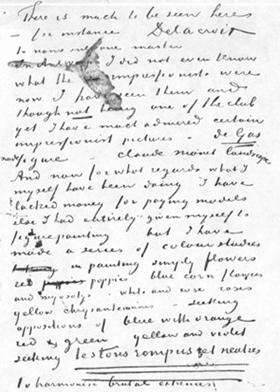 There is much to be seen here
– for instance Delacroix
to name only one master
In Antwerp I did not even know
what the impressionists were
now I have seen them and
though not being one of the club
yet I have much admired certain
impressionist pictures – de Gas
nude figure – claude monet landscape
And now for what regards what I
myself have been doing I have
lacked money for paying models
else I had entirely given myself to
figure painting but I have
made a series of colour studies
in painting simply flowers
red poppies blue corn flowers
and myosotys. white and rose roses
yellow chrysantemums – seeking
oppositions of blue with orange
red & green yellow and violet
seeking les tons rompus et neutres
to harmonise brutal extremes